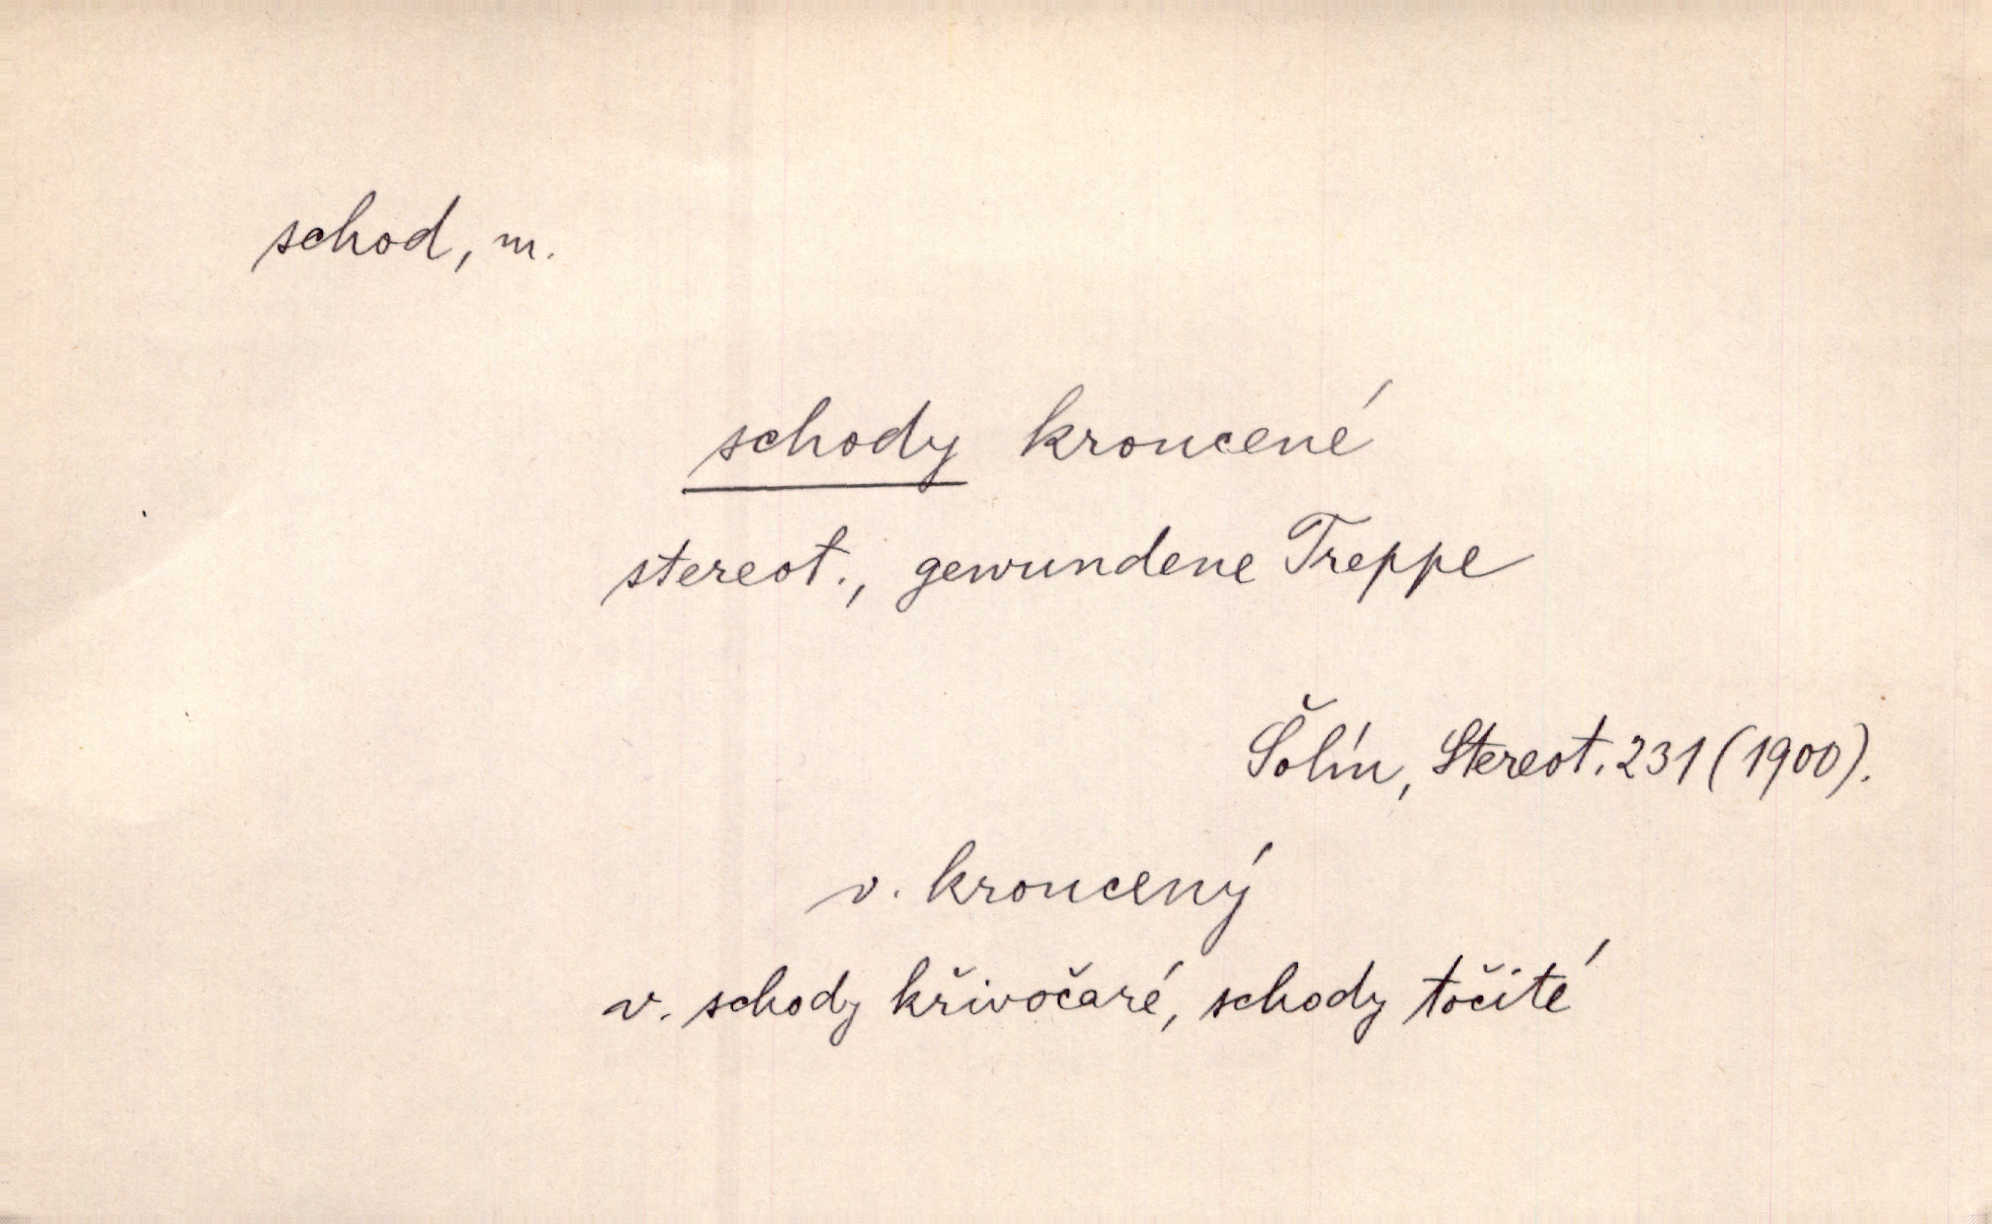 schod, m.
schody kroucené
stereot., gewundene Treppe
Šolín, Stereot. 231 (1900).
v. kroucený
v. schody křivočaré, schody točité